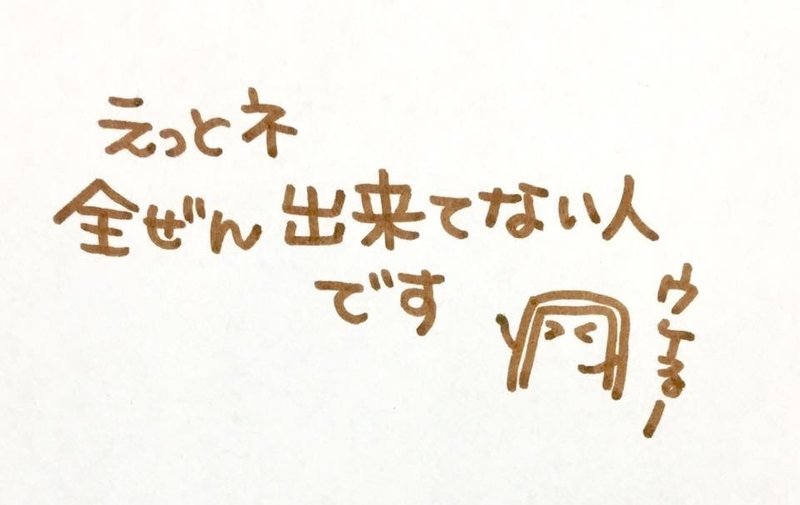 えっとネ
全ぜん出来てない人
です
ウケるー